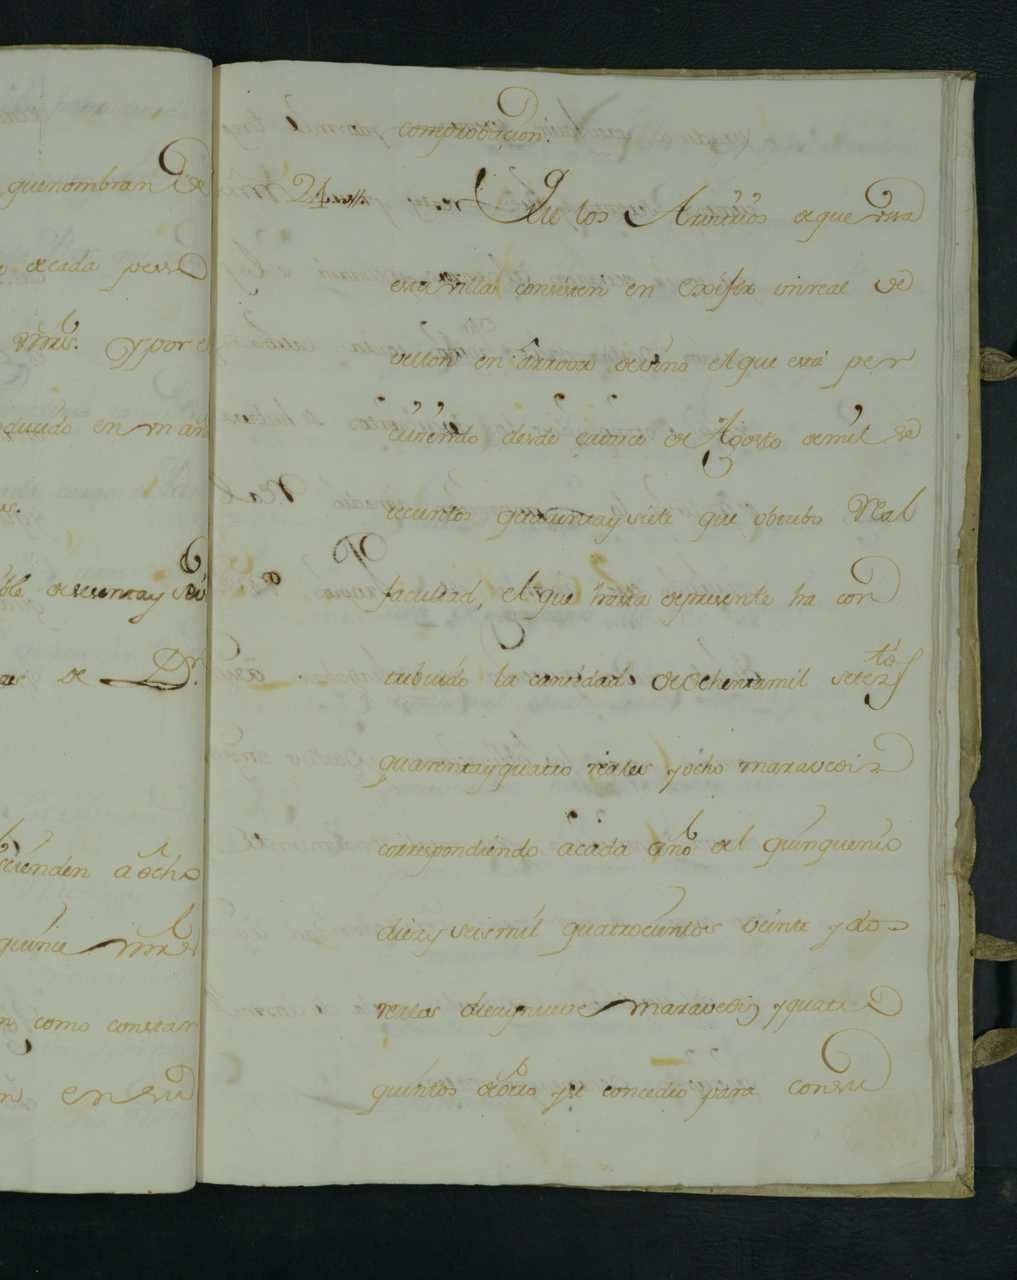 quenombran de
decada perso
Mrs. y por e
oducido en mar
de sesenta y seis
as de Dr.
scienden a ocho
quince mrs
como constar
en su
comprobacion.
24 Que los Arvitrios de que usa
esta villa consisten en exijir un real de
vellon en arrova de vino el que está per
civiendo desde quince de Agosto de mil se
tecientos quarenta y siete que obtubo Real
facultad, el que hasta depresente ha con
tribuido la cantidad de ochenta mil setezs.tos
quarenta y quatro reales y ocho maravedis
correspondiendo acada año del quinquenio
diez y seis mil quatrocientos veinte y dos
reales diez y nueve maravedis y quatro
quintos de otro y se concedió para con su